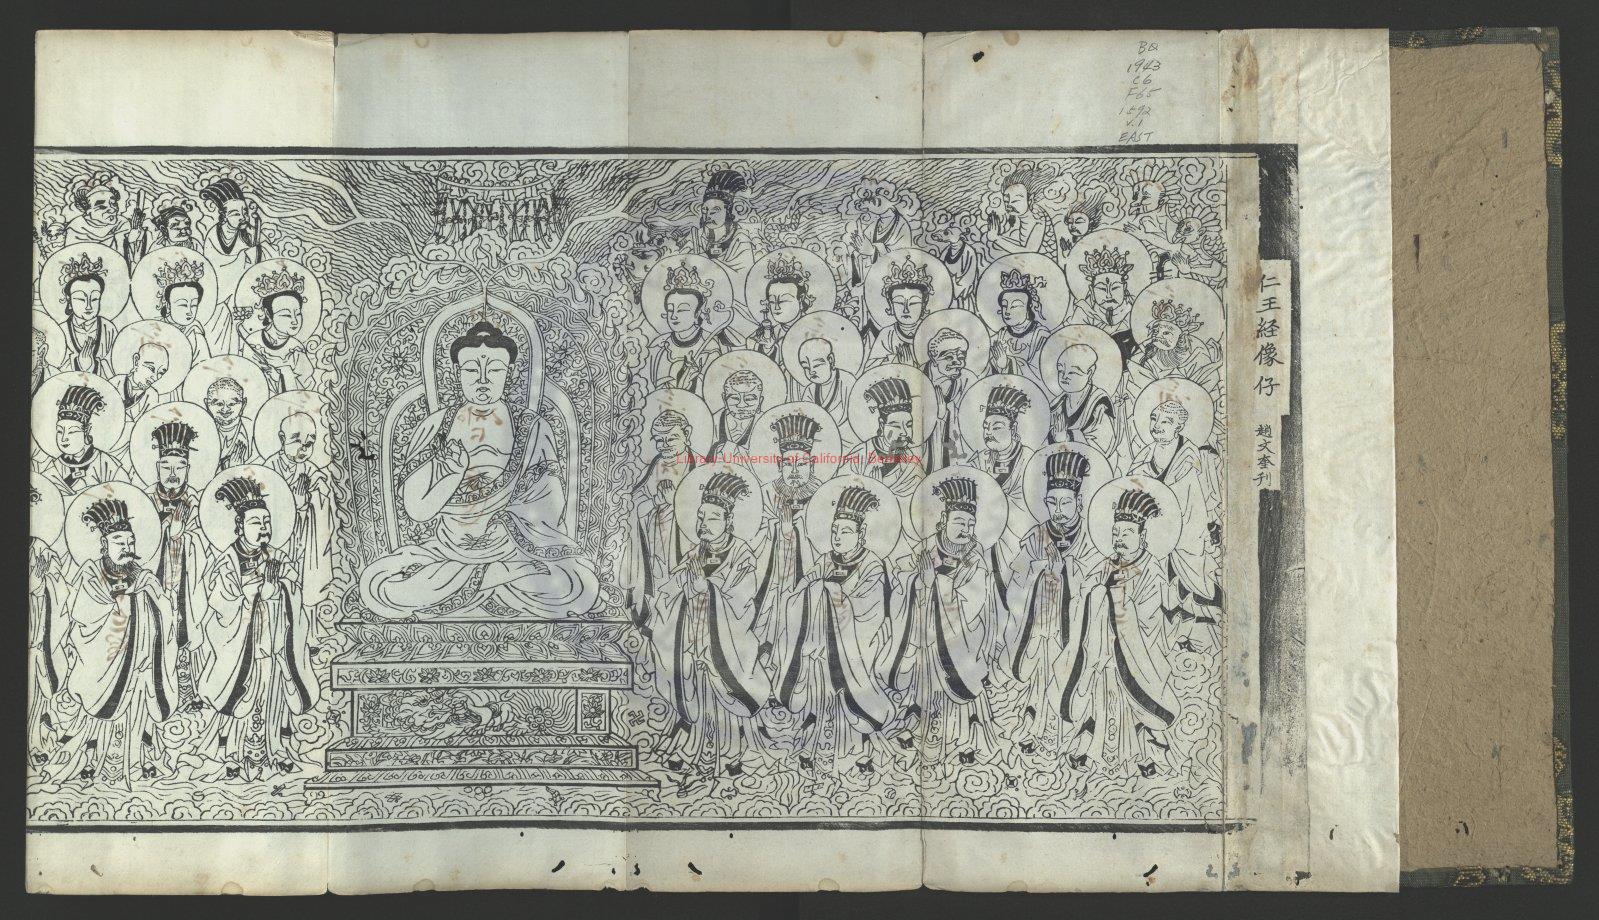 BQ
1943
C6
F65
1592
v.1
EAST
仁王経像仔
趙文奎刊
Library University of California, Berkeley